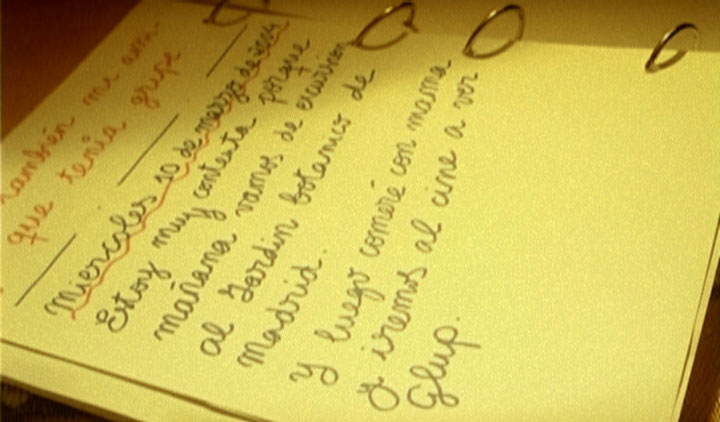 también mi ami-
que tenía gripe
Miercoles 10 de marzo de 2004
Estoy muy contenta porque
mañana vamos de excursion
al Jardin botanico de
Madrid.
Y luego comeré con mama
y iremos al cine a ver
Glup.